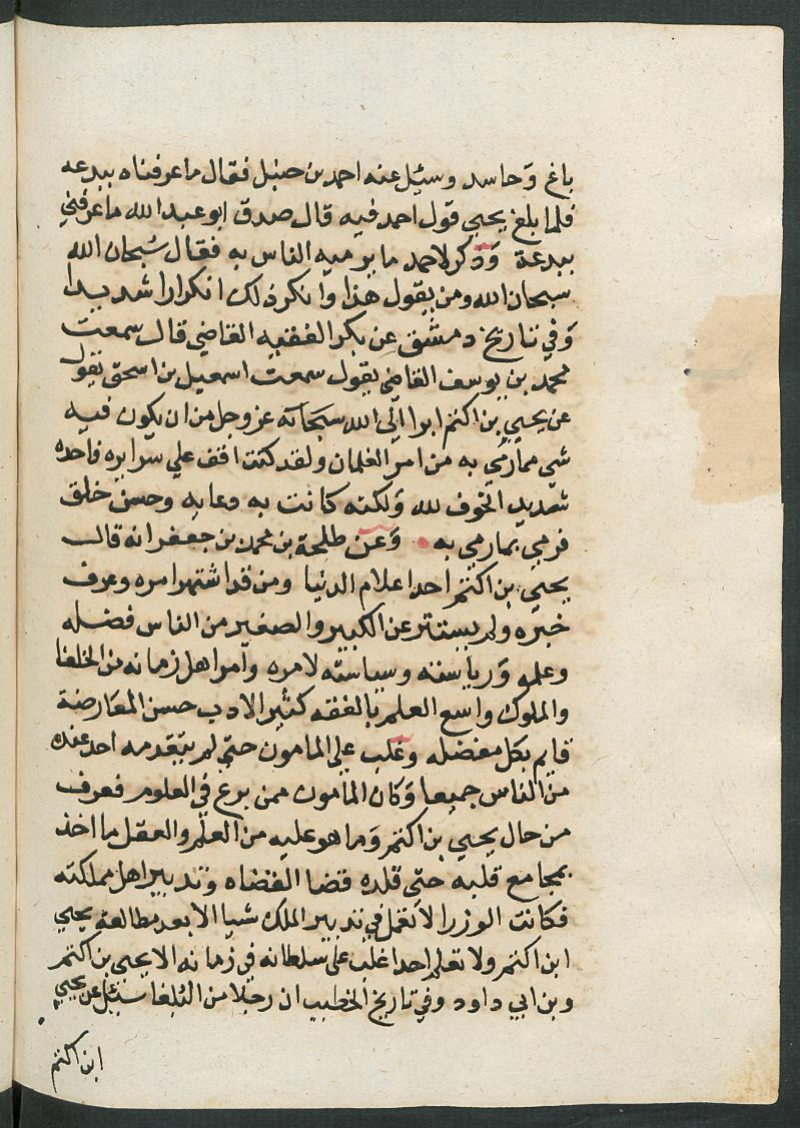 باغ وَحاسد وسئل عنه احمد بن حنبل فقال ما عرفناه ببدعه
فلما بلغ يحيي قول احمد فيه قال صدق ابو عبد الله ما عرفني
ببدعة وَذكر لاحمد ما يرميه الناس به فقال سُبحان الله
سبحان الله ومن يقول هذا وانكر ذلك انكارا شديدا
وَفي تاريخ دمشق عن بكر الفقيه القاضي قال سمعت
محمد بن يوسف القاضي يقول سمعت اسمعيل بن اسحق يقول
عن يحيي بن اكثم ابرا الي الله سبحانه عز وجل من ان يكون فيه
شي مما رُمي به من امر الغلمان ولقد كنت اقف علي سرايره فاحده
شديد الخوف لله وَلكنه كانت به دعابه وحسن خلق
فرمي بما رمي به وَعن طلحة بن محمد بن جعفر انه قال
يحيي بن اكثم احد اعلام الدنيا ومن قد اشتهر امره وعرف
خبره ولم يستتر عن الكبير والصغير من الناس فضله
وعلمه وَرياسته وسياسته لامره وامر اهل زمانه من الخلفا
والملوك واسع العلم بالفقه كثير الادب حسن المعَارضة
قايم بكل معضله وغلب علي المامون حتي لم يتقدمه احد عنده
من الناس جميعا وَكان المامون ممن برع في العلوم فعرف
من حال يحيي بن اكثم وَما هو عليه من العلم والعقل ما اخذ
بمجامع قلبه حتي قلده قضا القضاه وَتدبير اهل مملكته
فكانت الوزرا لا تعمل في تدبير الملك شيا الا بعد مطالعه يحيي
ابن اكثم ولا تعلم احدا غلب علي سلطانه في زمانه الا يحيي بن اكثم
وبن ابي داود وفي تاريخ الخطيب ان رجلا من البُلغا سئل عن يحيي
ابن اكثم